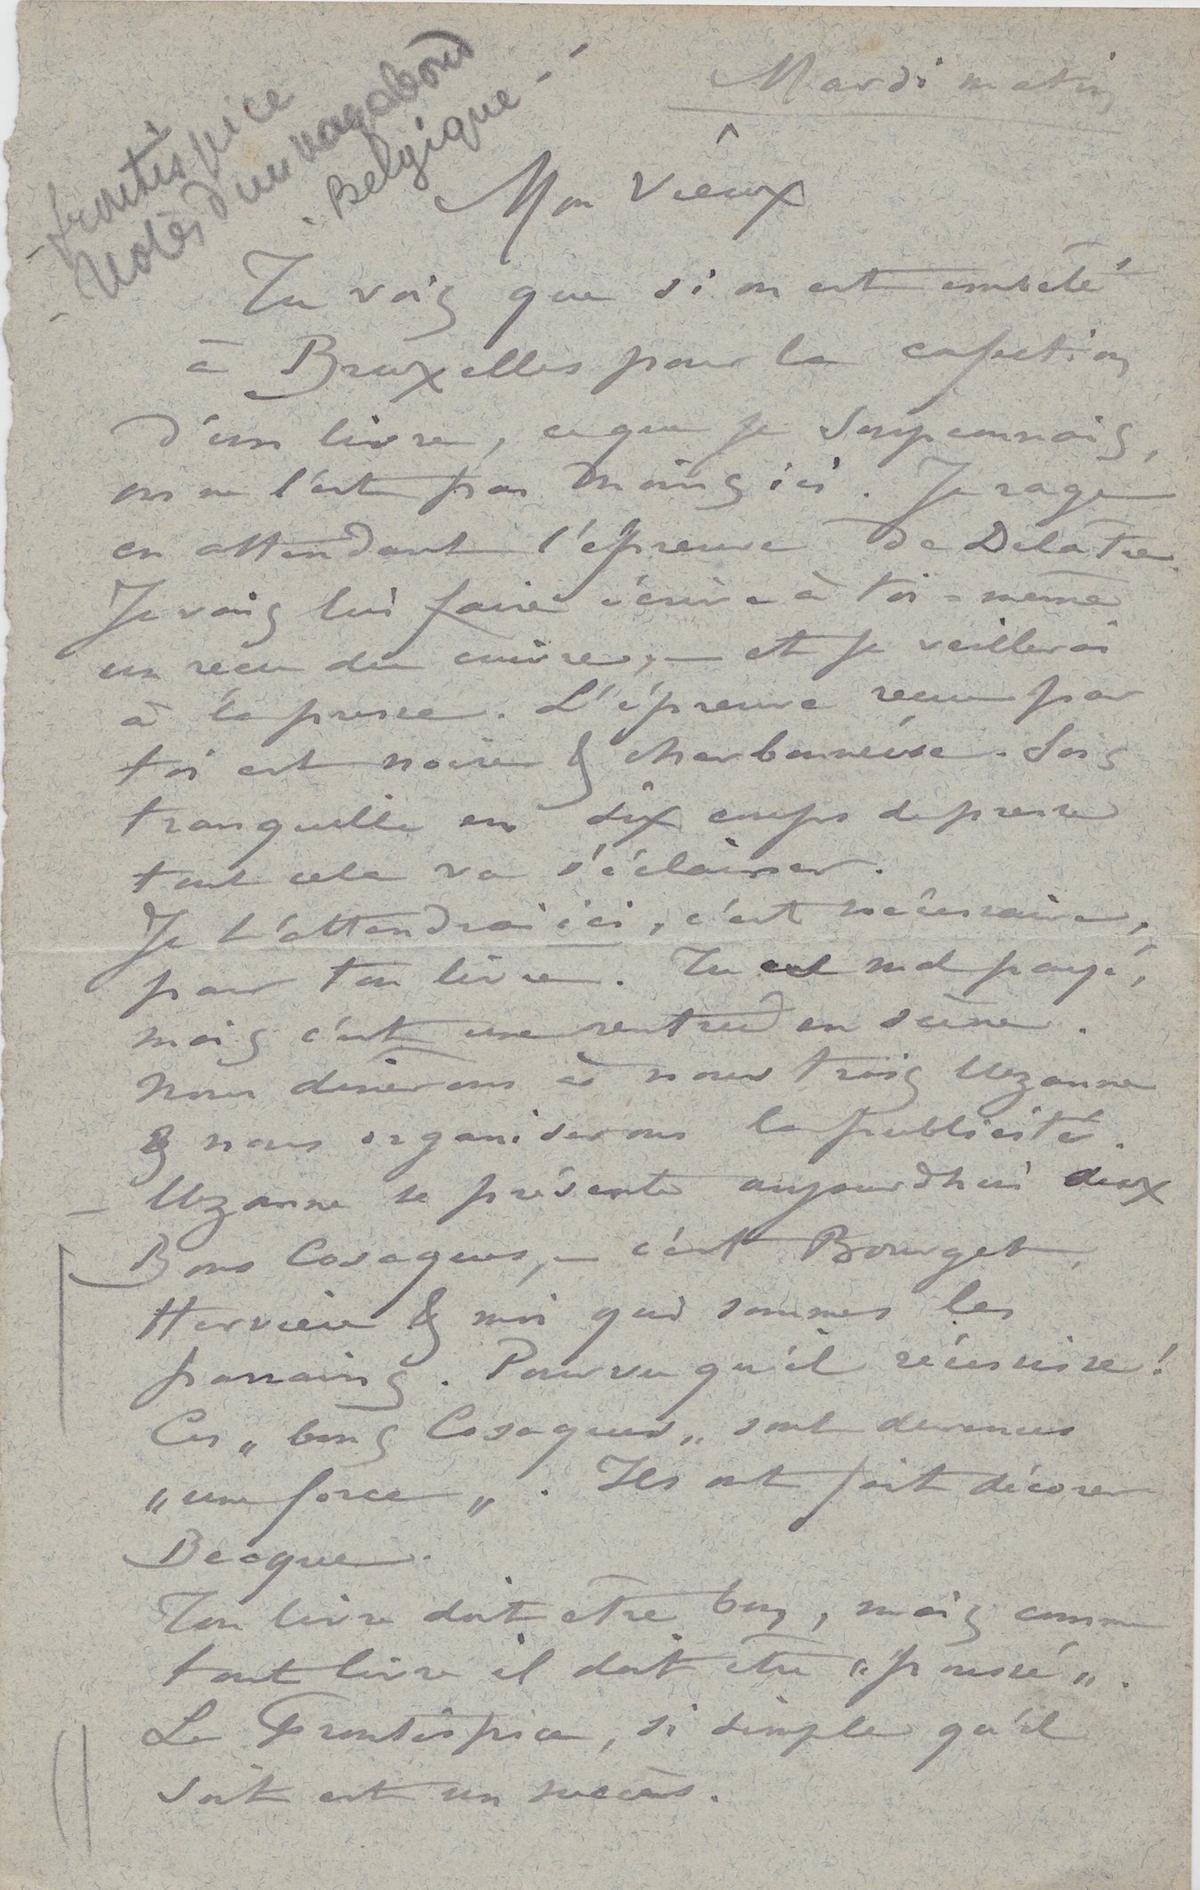 - frontispice
- Notes d'un vagabond
- Belgique
Mardi matin
Mon Vieux
Tu vois que si on est embêté
à Bruxelles pour la cofection
d'un livre, ce que je soupconnais,
on ne l'est pas moins ici. Je rage
en attendant l'épreuve de Delâtre.
Je vais lui faire écrire à toi-même
un recu du cuivre, — et je veillerai
à la presse. L'épreuve recue par
toi est noire & charbonneuse. Sois
tranquille en dix coups de presse
tout cela va s'éclairer.
Je t'attendrai ici, c'est nécessaire,
pour ton livre. Tu est mal payé,
mais c'est une rentrée en scène.
Nous dinerons à nous trois Uzanne
& nous organiserons la publicité.
- Uzanne se présente aujourdhui aux
Bons Cosaques, — c'est Bourget,
Hervieu & moi qui sommes les
parrains. Pourvu qu'il réussisse!
Ces „ bons Cosaques „ sont devenus
„ une force „. Ils ont fait décorer
Becque.
Ton livre doit être bon, mais comme
tout livre il doit être „ poussé „.
Le Frontispice, si simple qu'il
soit est un succès.